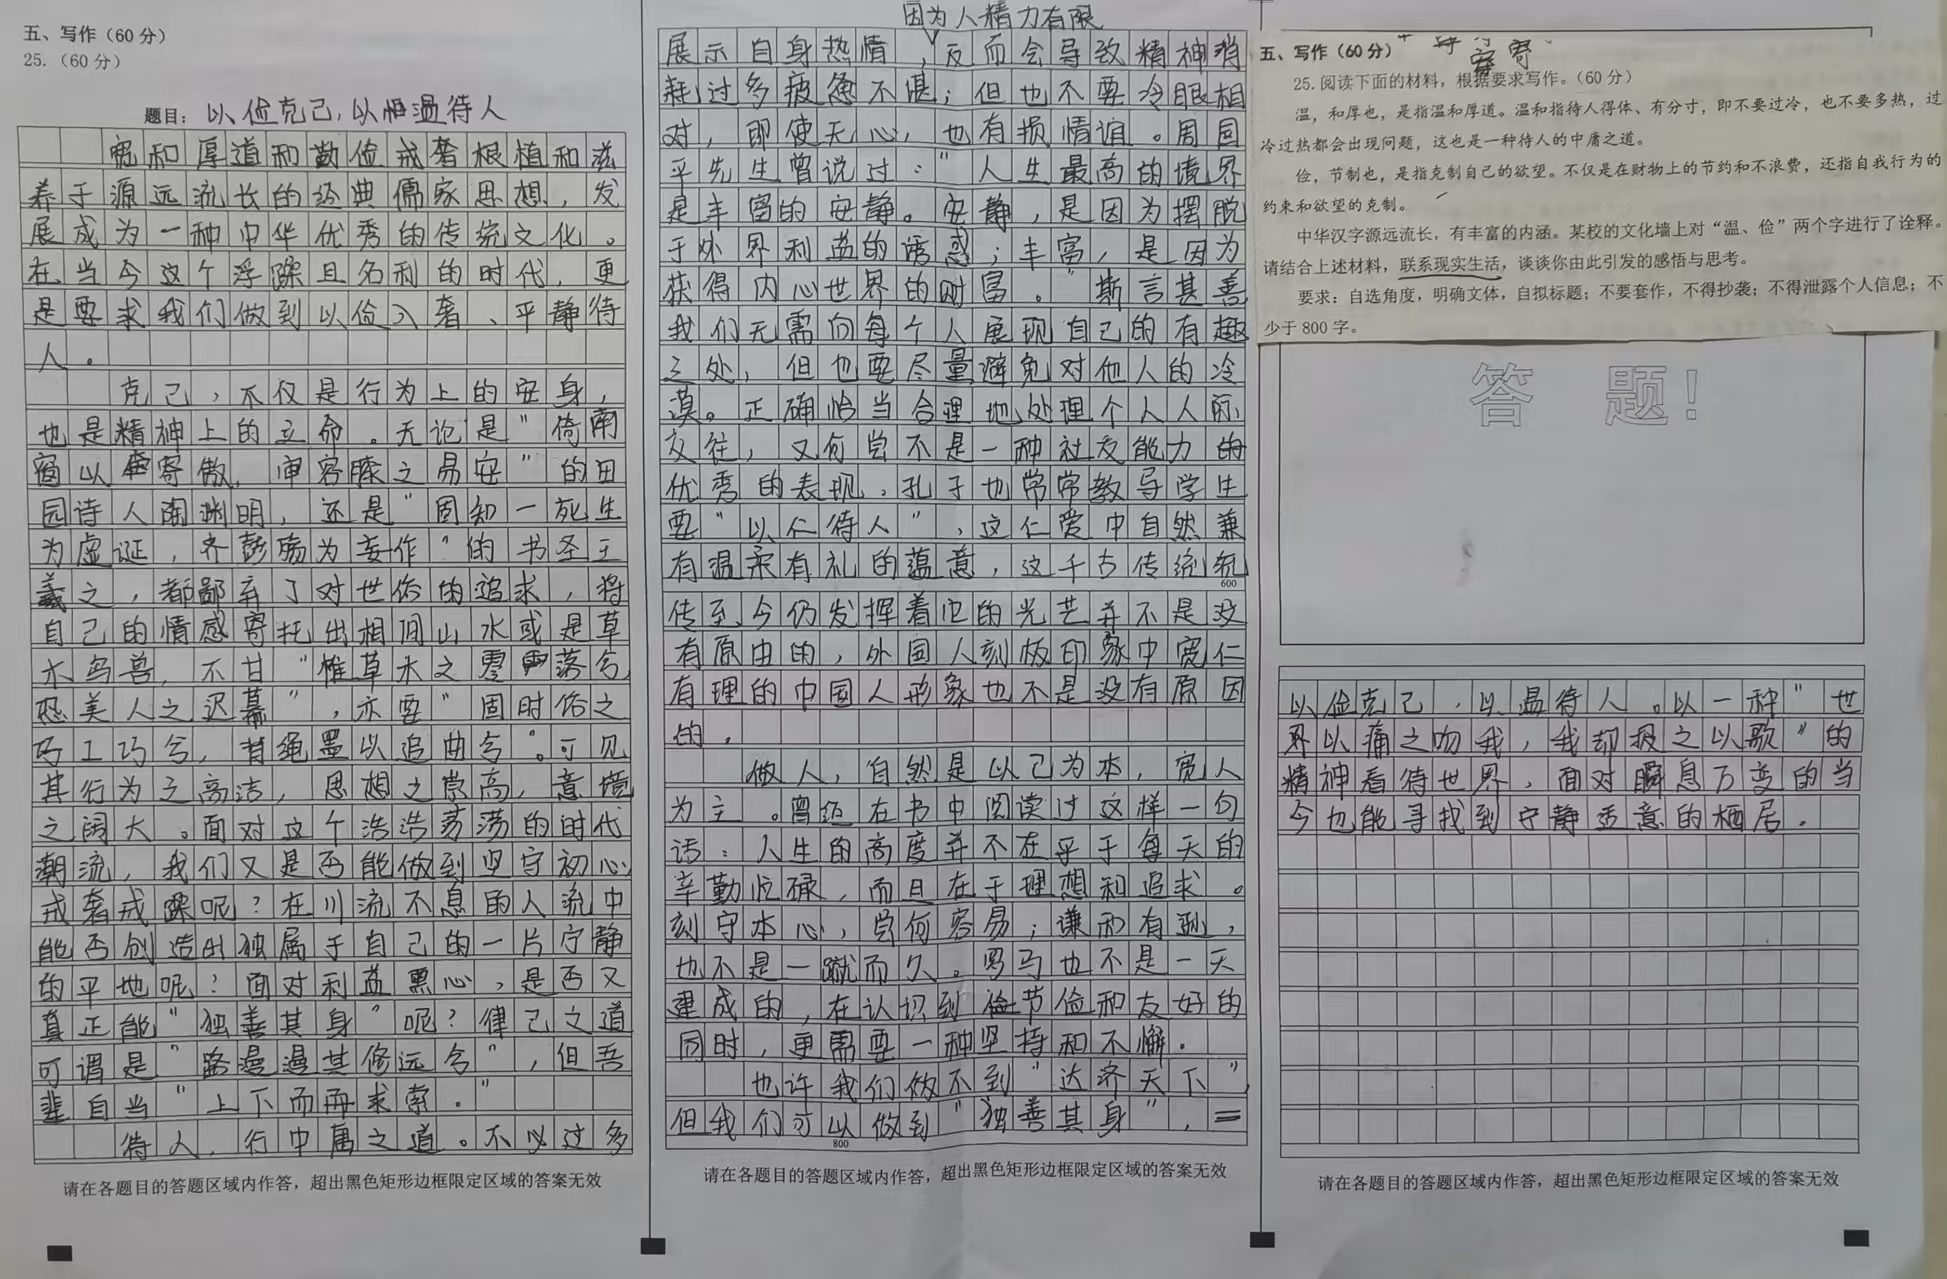 五、写作（60分）
25.（60分）
题目：以俭克己，以温待人
宽和厚道和勤俭戒奢根植和滋
养于源远流长的经典儒家思想，发
展成为一种中华优秀的传统文化。
在当今这个浮躁且名利的时代，更
是要求我们做到以俭入奢、平静待
人。
克己，不仅是行为上的安身，
也是精神上的立命。无论是“倚南
窗以寄傲，审容膝之易安”的田
园诗人陶渊明，还是“固知一死生
为虚诞，齐彭殇为妄作”的书圣王
羲之，都鄙弃了对世俗的追求，将
自己的情感寄托出相间山水或是草
木鸟兽，不甘“惟草木之零落兮，
恐美人之迟暮”，亦要“固时俗之
巧工巧兮，背绳墨以追曲兮”。可见
其行为之高洁，思想之崇高，意境
之阔大。面对这个浩浩荡荡的时代
潮流，我们又是否能做到坚守初心
戒奢戒躁呢？在川流不息的人流中
能否创造出独属于自己的一片宁静
的平地呢？面对利益熏心，是否又
真正能“独善其身”呢？律己之道
可谓是“路漫漫其修远兮”，但吾
辈自当“上下而而求索。”
待人，行中庸之道。不以过多
因为人精力有限
展示自身热情，反而会导致精神消
耗过多疲惫不堪；但也不要冷眼相
对，即使无心，也有损情谊。周国
平先生曾说过：“人生最高的境界
是丰富的安静。安静，是因为摆脱
于外界利益的诱惑；丰富，是因为
获得内心世界的财富。”斯言甚善
我们无需向每个人展现自己的有趣
之处，但也要尽量避免对他人的冷
漠。正确恰当合理地处理个人人际
交往，又何尝不是一种社交能力的
优秀的表现，孔子也常常教导学生
要“以仁待人”，这仁爱中自然兼
有温柔有礼的蕴意，这千古传统流
600
传至今仍发挥着它的光芒并不是没
有原由的，外国人刻板印象中宽仁
有理的中国人形象也不是没有原因
的。
做人，自然是以己为本，宽人
为主。曾经在书中阅读过这样一句
话：人生的高度并不在乎于每天的
辛勤忙碌，而且在于理想和追求。
刻守本心，尝何容易；谦和有逊，
也不是一蹴而久。罗马也不是一天
建成的，在认识到节俭和友好的
同时，更需要一种坚持和不懈。
也许我们做不到“达济天下”
但我们可以做到“独善其身”，
800
五、写作（60分）
25.阅读下面的材料，根据要求写作。（60分）
温，和厚也，是指温和厚道。温和指待人得体、有分寸，即不要过冷，也不要多热，过
冷过热都会出现问题，这也是一种待人的中庸之道。
俭，节制也，是指克制自己的欲望。不仅是在财物上的节约和不浪费，还指自我行为的
约束和欲望的克制。
中华汉字源远流长，有丰富的内涵。某校的文化墙上对“温、俭”两个字进行了诠释。
请结合上述材料，联系现实生活，谈谈你由此引发的感悟与思考。
要求：自选角度，明确文体，自拟标题；不要套作，不得抄袭；不得泄露个人信息；不
少于800字。
答题！
以俭克己，以温待人。以一种“世
界以痛之吻我，我却报之以歌”的
精神看待世界，面对瞬息万变的当
今也能寻找到宁静适意的栖居。
请在各题目的答题区域内作答，超出黑色矩形边框限定区域的答案无效
请在各题目的答题区域内作答，超出黑色矩形边框限定区域的答案无效
请在各题目的答题区域内作答，超出黑色矩形边框限定区域的答案无效